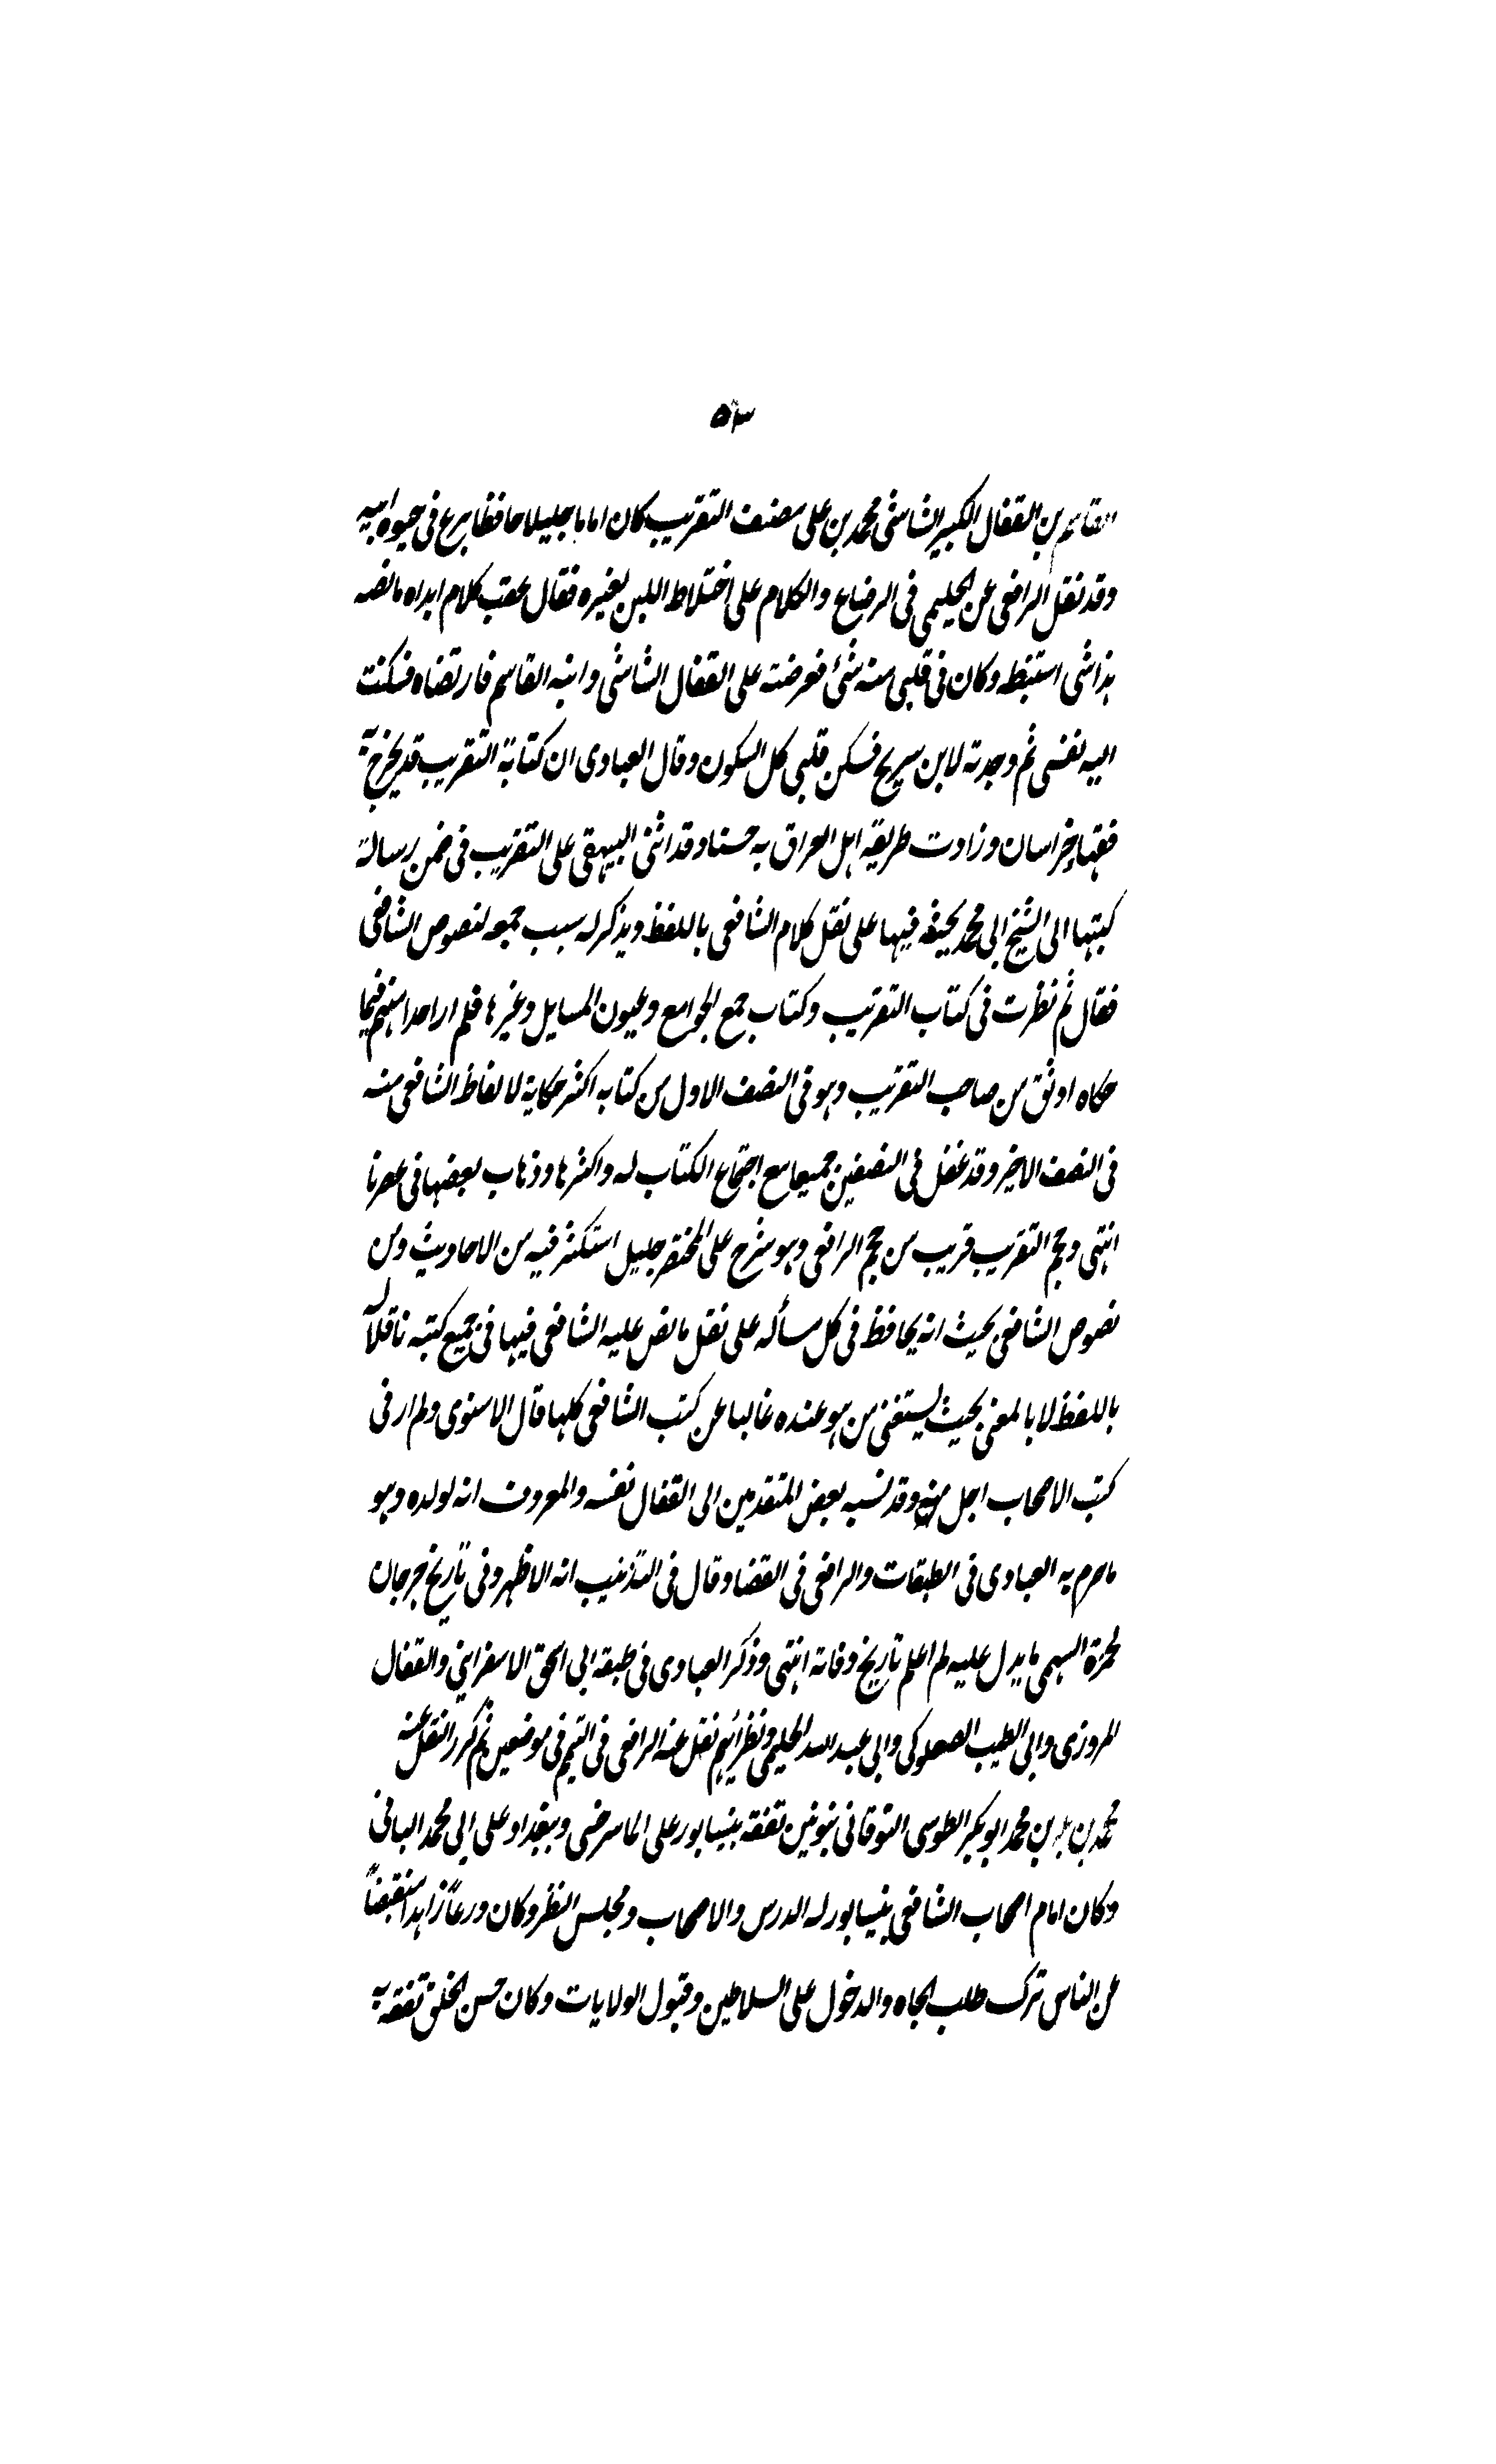 ٥٣
القاسم بن القفال الكبير الشاشى محمد بن على مصنف التقريب كان اماما جليلا حافظا برع فى حيوه ابيه
وقد نقل الرافعى عن الحليمى فى الرضاع والكلام على اختلاط اللبن بغيره فقال عقب كلام ابداه ما نصه
هذا شى استنبطه وكان فى قلبى منه شئ فعرضته على القفال الشاشى وابنه القاسم فارتضاه فسكنت
اليه نفسى ثم وجدته لابن سريج فسكن قلبى كل السكون وقال العبادى ان كتابة التقريب قد تخرج به
فقهاء خراسان وزادت طريقة اهل العراق به حسنا وقد اثنى البيهقى على التقريب فى ضمن رسالة
كتبها الى الشيخ ابى محمد يحيثه فيها على نقل كلام الشافعى باللفظ ويذكر له سبب جمعه لنصوص الشافعى
فقال ثم نظرت فى كتاب التقريب وكتاب جمع الجوامع وعيون المسايل وغيرها فلم ار احدا منهم فيما
حكاه اوثق من صاحب التقريب وهو فى النصف الاول من كتابه اكثر حكاية لالفاظ الشافعى منه
فى النصف الاخير وقد غفل فى النصفين جميعا مع اجتماع الكتاب له واكثرها وذهاب بعضها فى عصرنا
انتهى وحجم التقريب قريب من حجم الرافعى وهو شرح على المختصر جليل استكثر فيه من الاحاديث ومن
نصوص الشافعى بحيث انه يحافظ فى كل مسألة على نقل ما نص عليه الشافعى فيها فى جميع كتبه ناقلا له
باللفظ لا بالمعنى بحيث يستغنى من هو عنده غالبا عن كتب الشافعى كلها قال الاسنوى ولم ار فى
كتب الاصحاب اجل منه وقد نسبه بعض المتقدمين الى القفال نفسه والمعروف انه لولده وهو
ما صرح به العبادى فى الطبقات والرافعى فى القضا وقال فى التذنيب انه الاظهر وفى تاريخ جرجان
لحمزة السهمى ما يدل عليه لم اعلم تاريخ وفاته انتهى وذكر العبادى فى طبقة ابى اسحق الاسفراينى والقفال
المروزى وابى الطيب الصعلوكى وابى عبد الله الحليمى ونظرائهم نقل عنه الرافعى فى التيمم فى موضعين ثم كرر النقل عنه
محمد بن بكر بن محمد ابو بكر الطوسى النوقانى بنونين تفقه بنيسابور على الماسرخسى وببغداد على ابى محمد البافى
وكان امام اصحاب الشافعى بنيسابور له الدرس والاصحاب ومجلس النظر وكان ورعاً زاهدا منقبضاً
عن الناس ترك طلب الجاه والدخول على السلاطين وقبول الولايات وكان حسن الخلق تفقه به